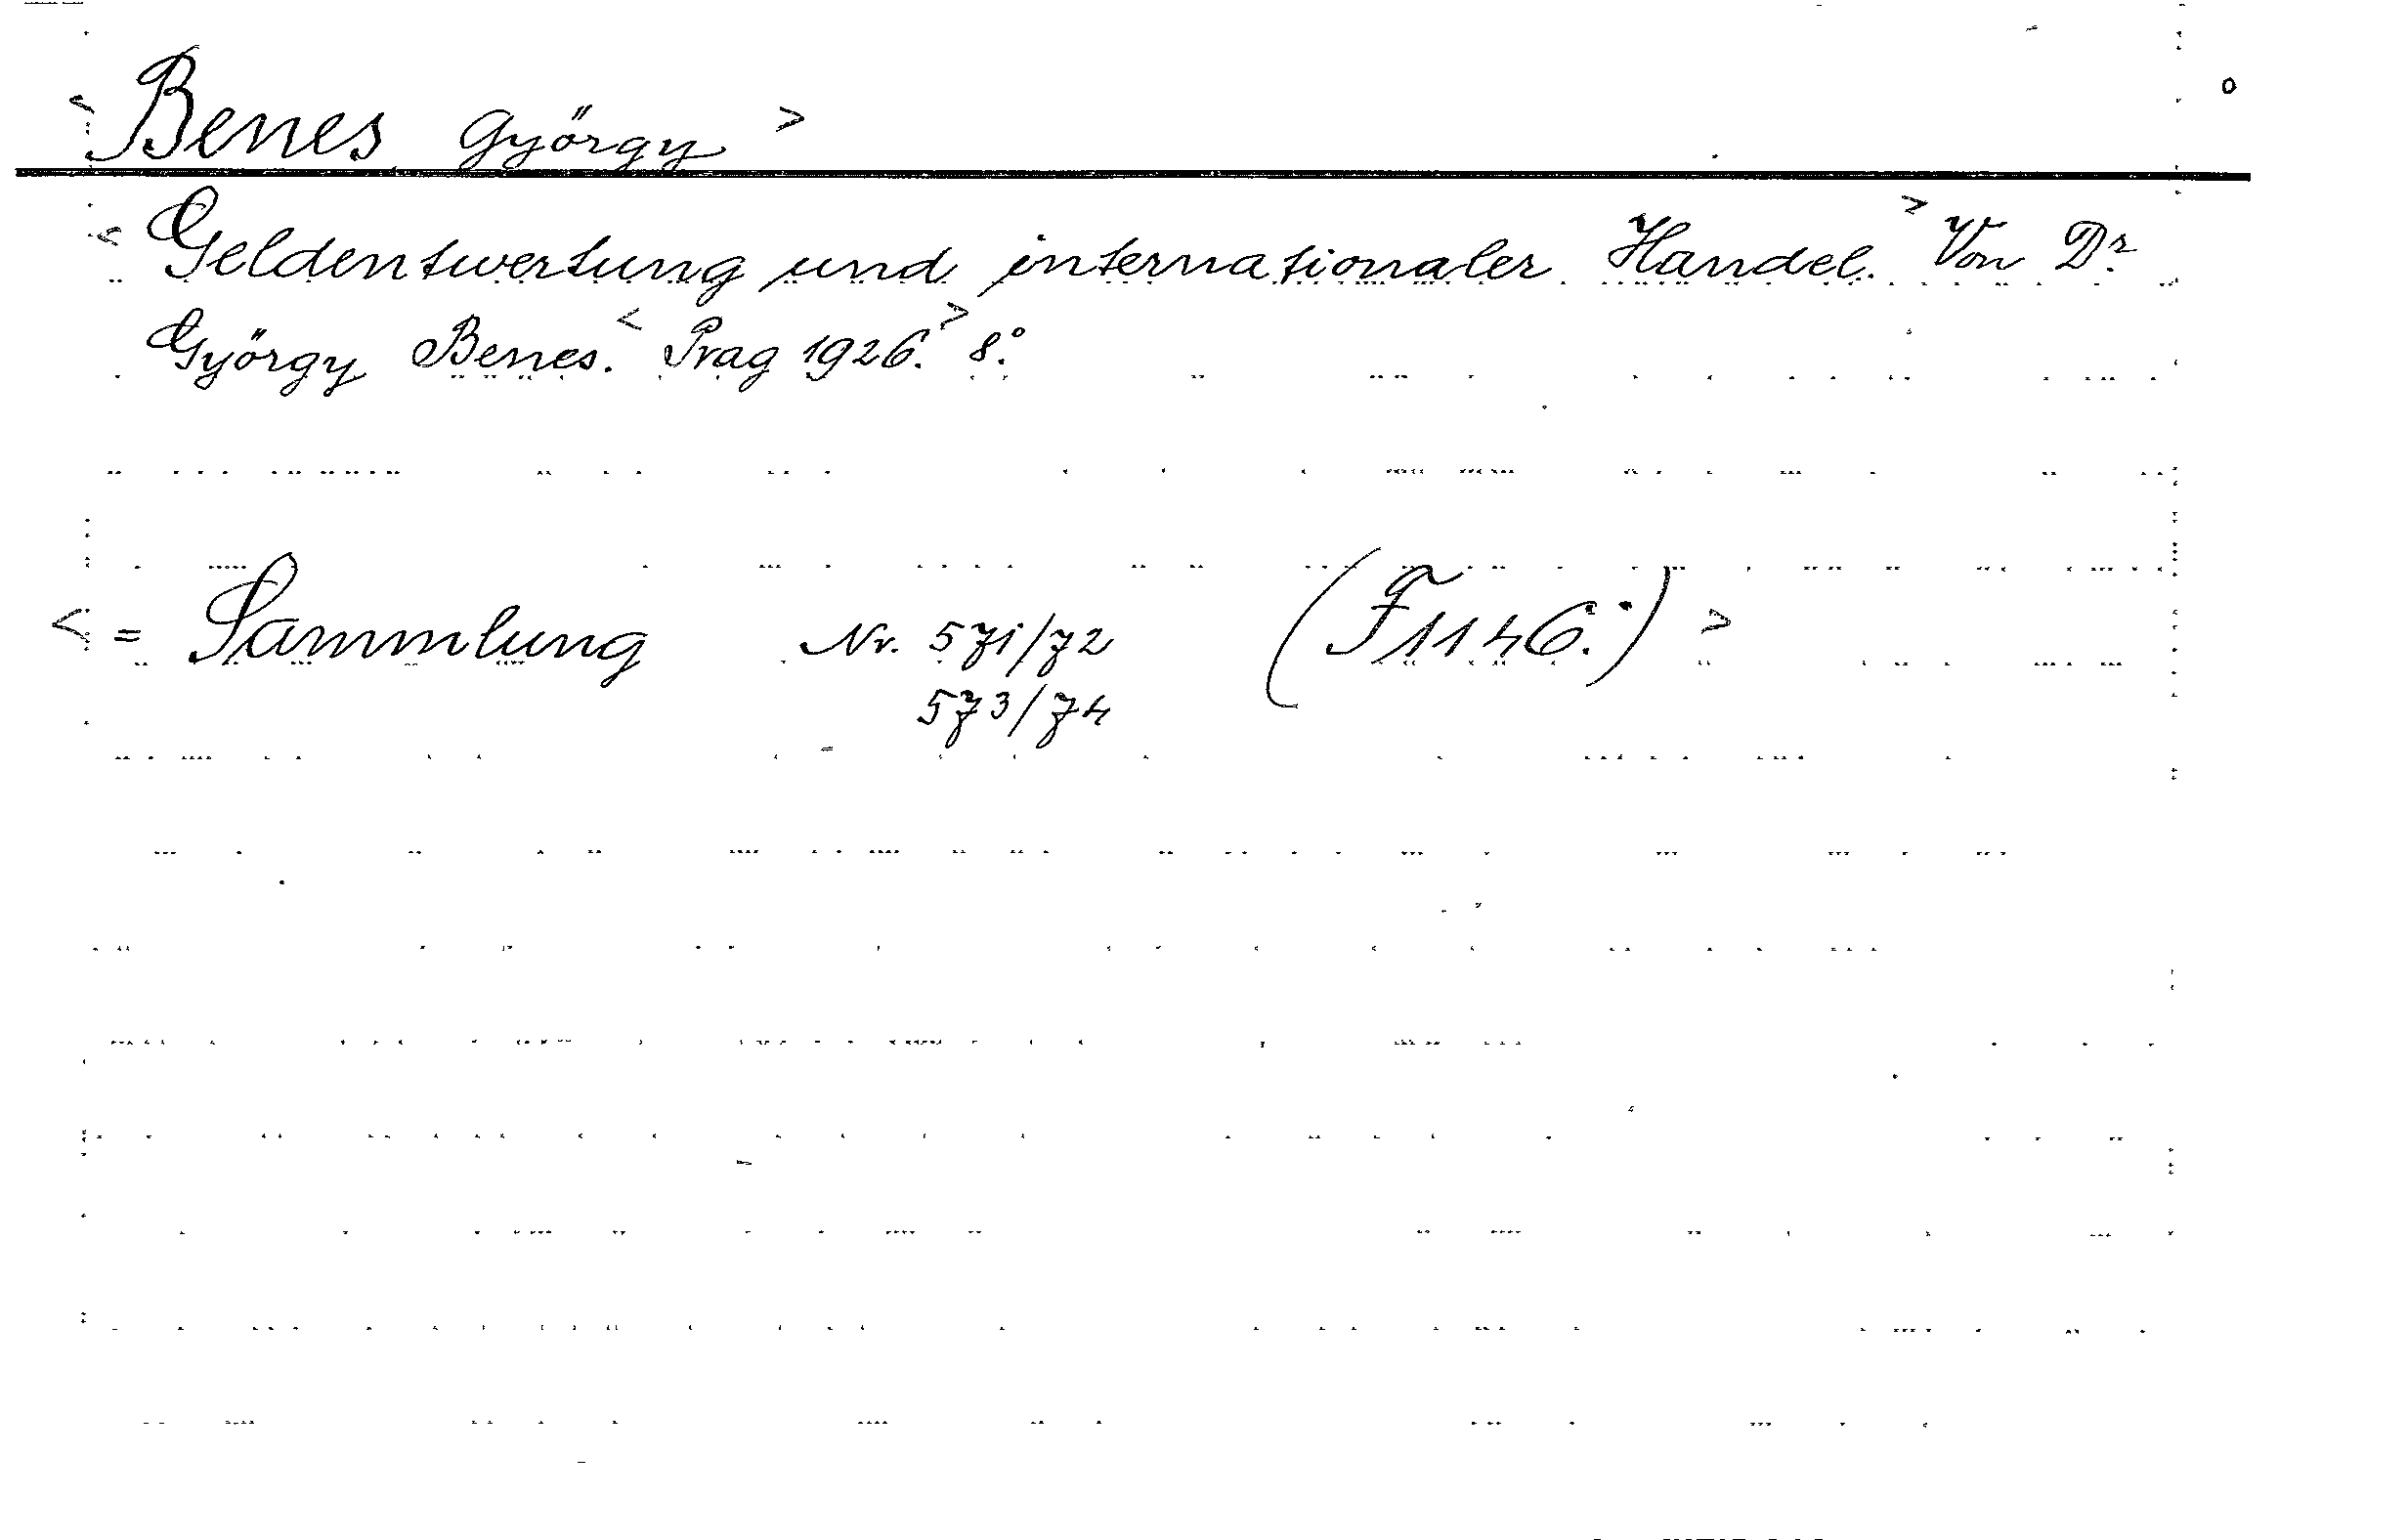 < Benes György >
< Geldentwertung und internationaler Handel. > Von Dr.
György Benes. < Prag 1926. > 8°.
< = Sammlung Nr. 571/72 (F 1146.) >
573/74